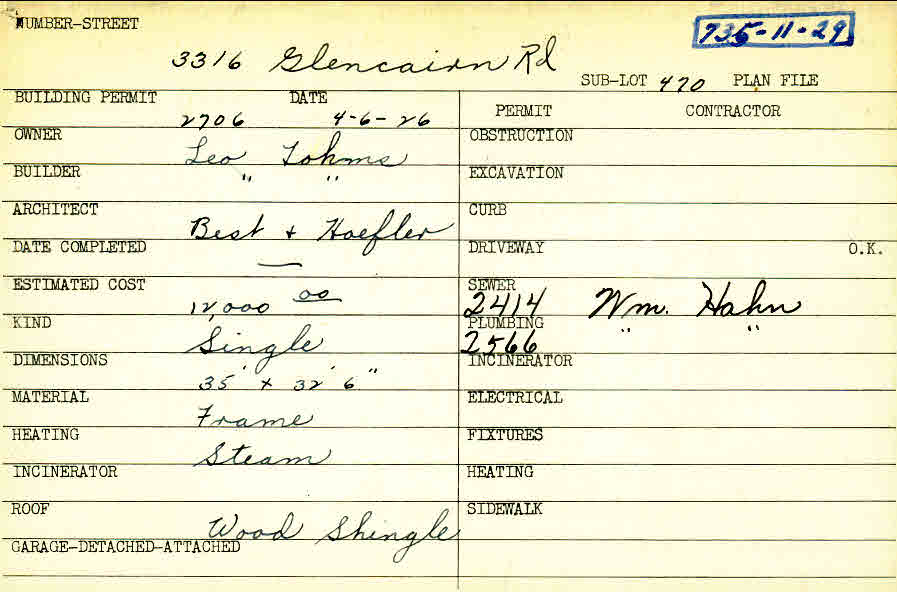 NUMBER-STREET
735-11-29
3316 Glencairn Rd
SUB-LOT 470 PLAN FILE
BUILDING PERMIT DATE
2706 4-6-26
PERMIT CONTRACTOR
OWNER
Leo
BUILDER
" "
ARCHITECT
Best + Hoefler
DATE COMPLETED
—
ESTIMATED COST
12,000 00
KIND
Single
DIMENSIONS
35' x 32' 6"
MATERIAL
Frame
HEATING
Steam
INCINERATOR
ROOF
Wood Shingle
GARAGE-DETACHED-ATTACHED
OBSTRUCTION
EXCAVATION
CURB
DRIVEWAY O.K.
SEWER
2414 Wm. Hahn
PLUMBING
2566 " "
INCINERATOR
ELECTRICAL
FIXTURES
HEATING
SIDEWALK